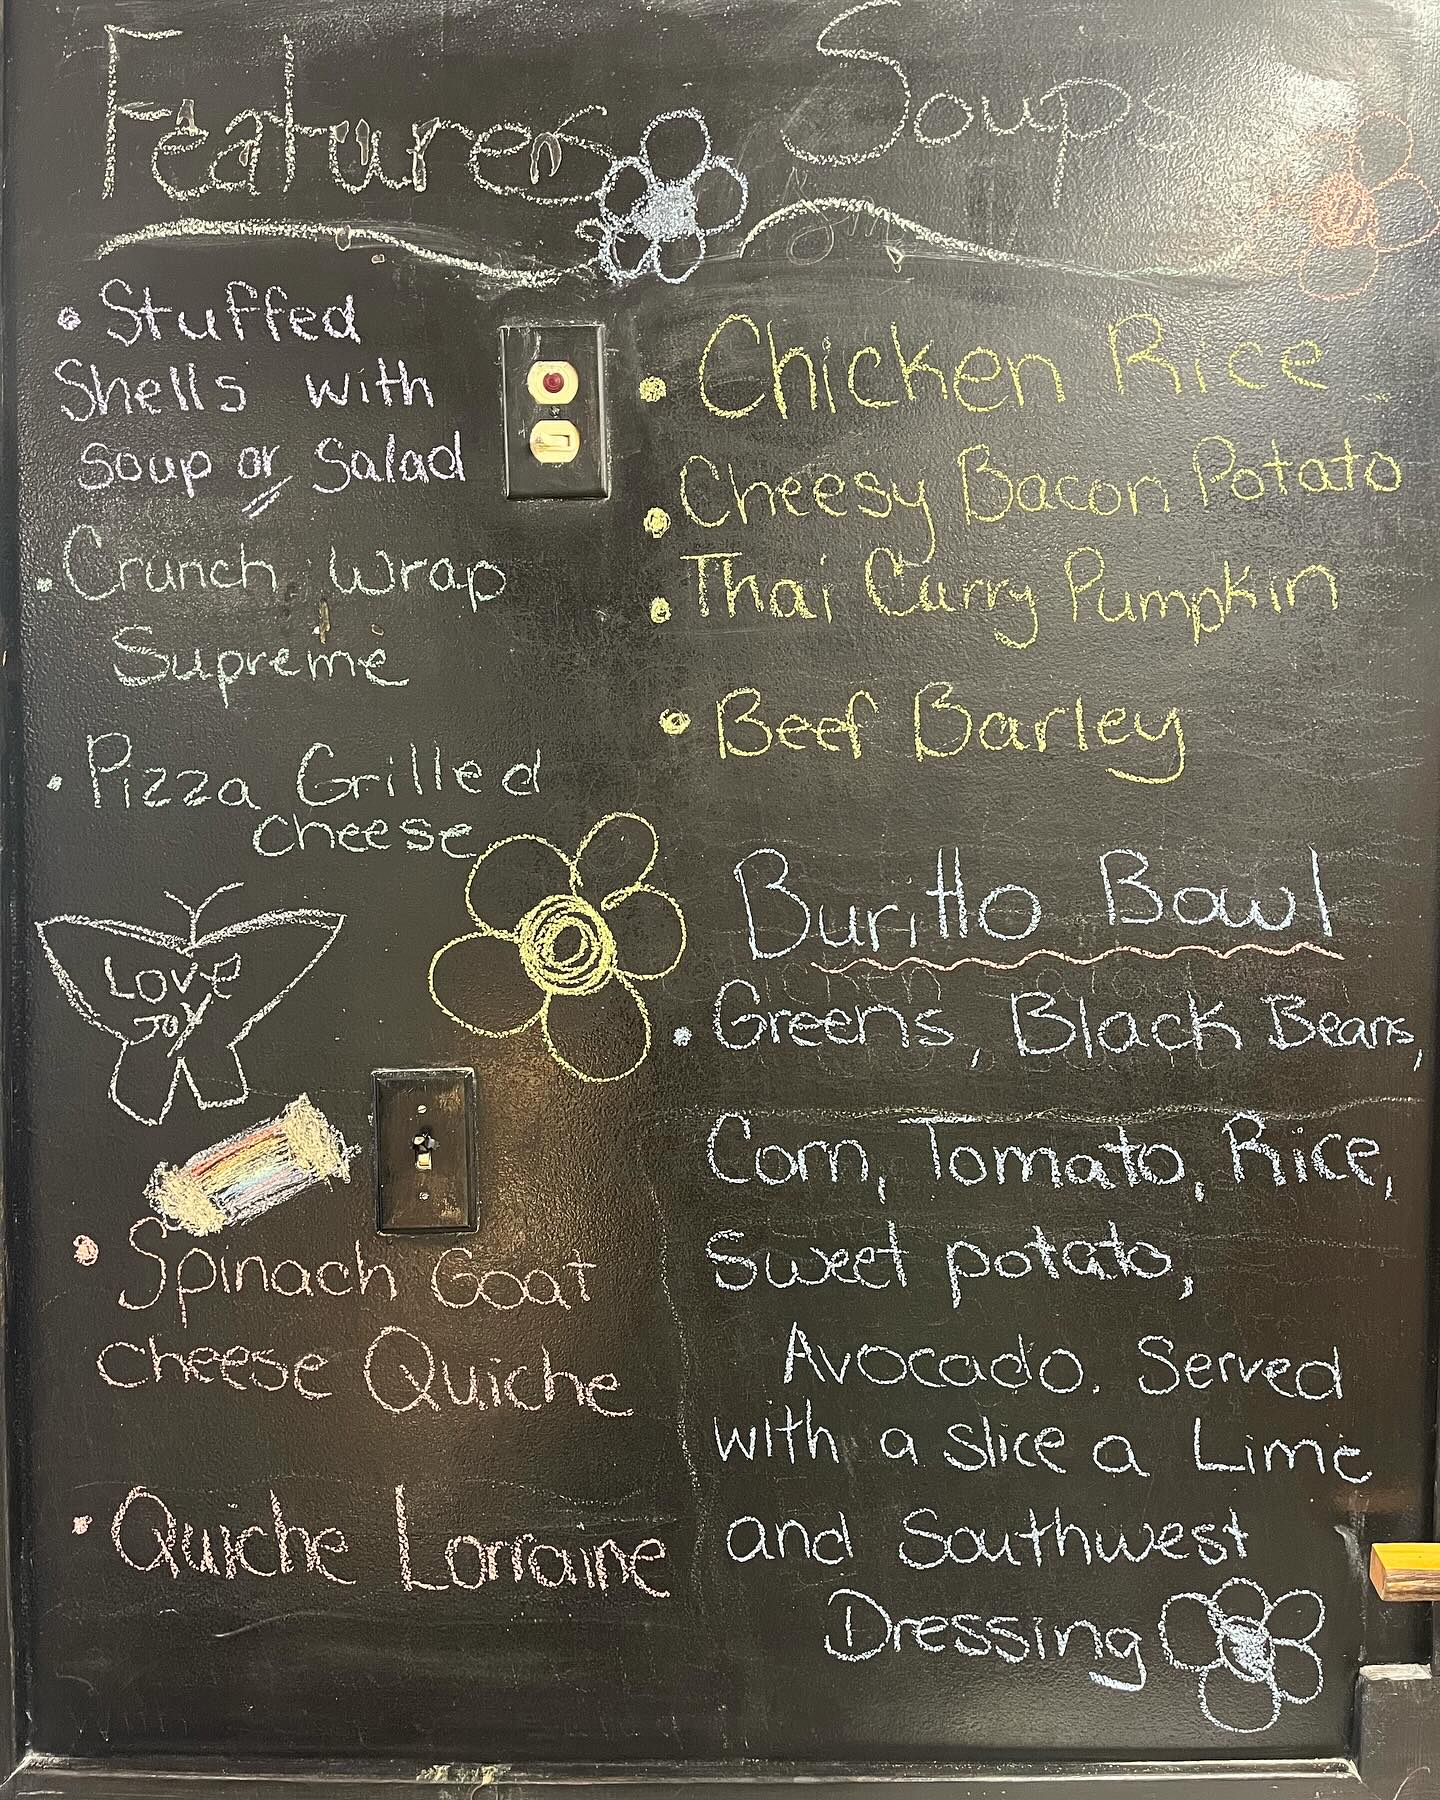 Features
• Stuffed
Shells with
soup or Salad
• Crunch Wrap
Supreme
• Pizza Grilled
cheese
LOVE
JOY
• Spinach Goat
cheese Quiche
• Quiche Lorraine
Soups
• Chicken Rice
• Cheesy Bacon Potato
• Thai Curry Pumpkin
• Beef Barley
Buritto Bowl
• Greens, Black Beans,
Corn, Tomato, Rice,
Sweet potato,
Avocado. Served
with a slice a Lime
and Southwest
Dressing